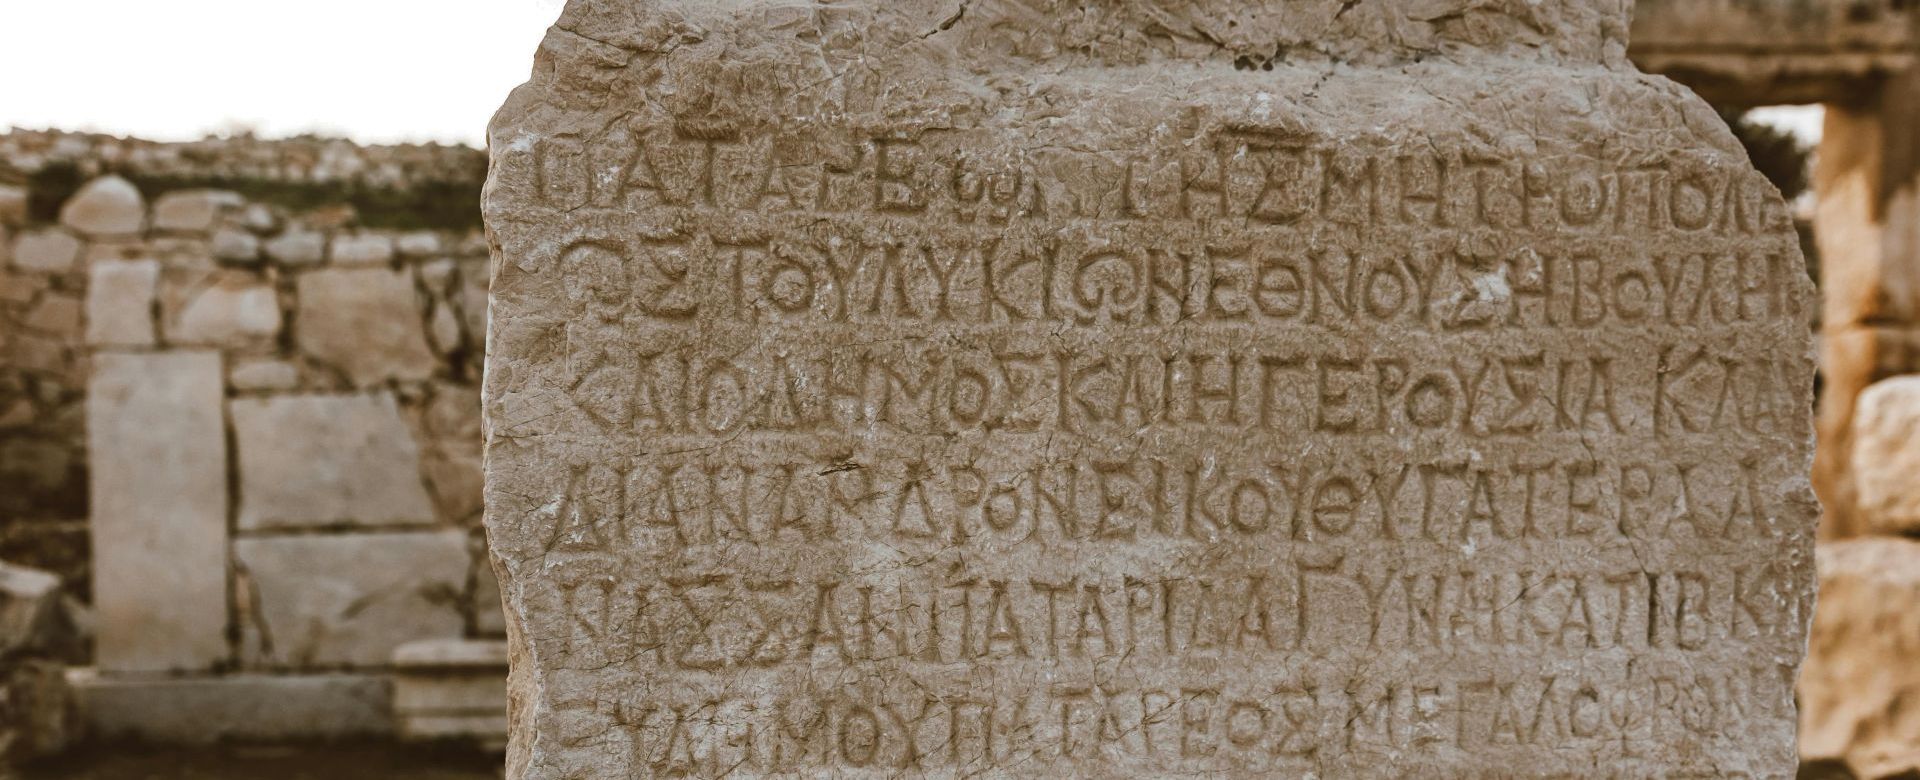 ΠΑΤΑΡΕΩΝΤΗΣΜΗΤΡΟΠΟΛΕ
ΩΣΤΟΥΛΥΚΙΩΝΕΘΝΟΥΣΗΒΟΥΛΗ
ΚΑΙΟΔΗΜΟΣΚΑΙΗΓΕΡΟΥΣΙΑΚΛΑΥ
ΔΙΑΝΑΝΔΡΟΝΕΙΚΟΥΘΥΓΑΤΕΡΑΑ
ΝΑΣΣΑΝΠΑΤΑΡΙΔΑΓΥΝΑΙΚΑΤΙΒΚ
ΕΥΔΗΜΟΥΠΑΤΑΡΕΟΣΜΕΓΑΛΟΦΡΟΝ